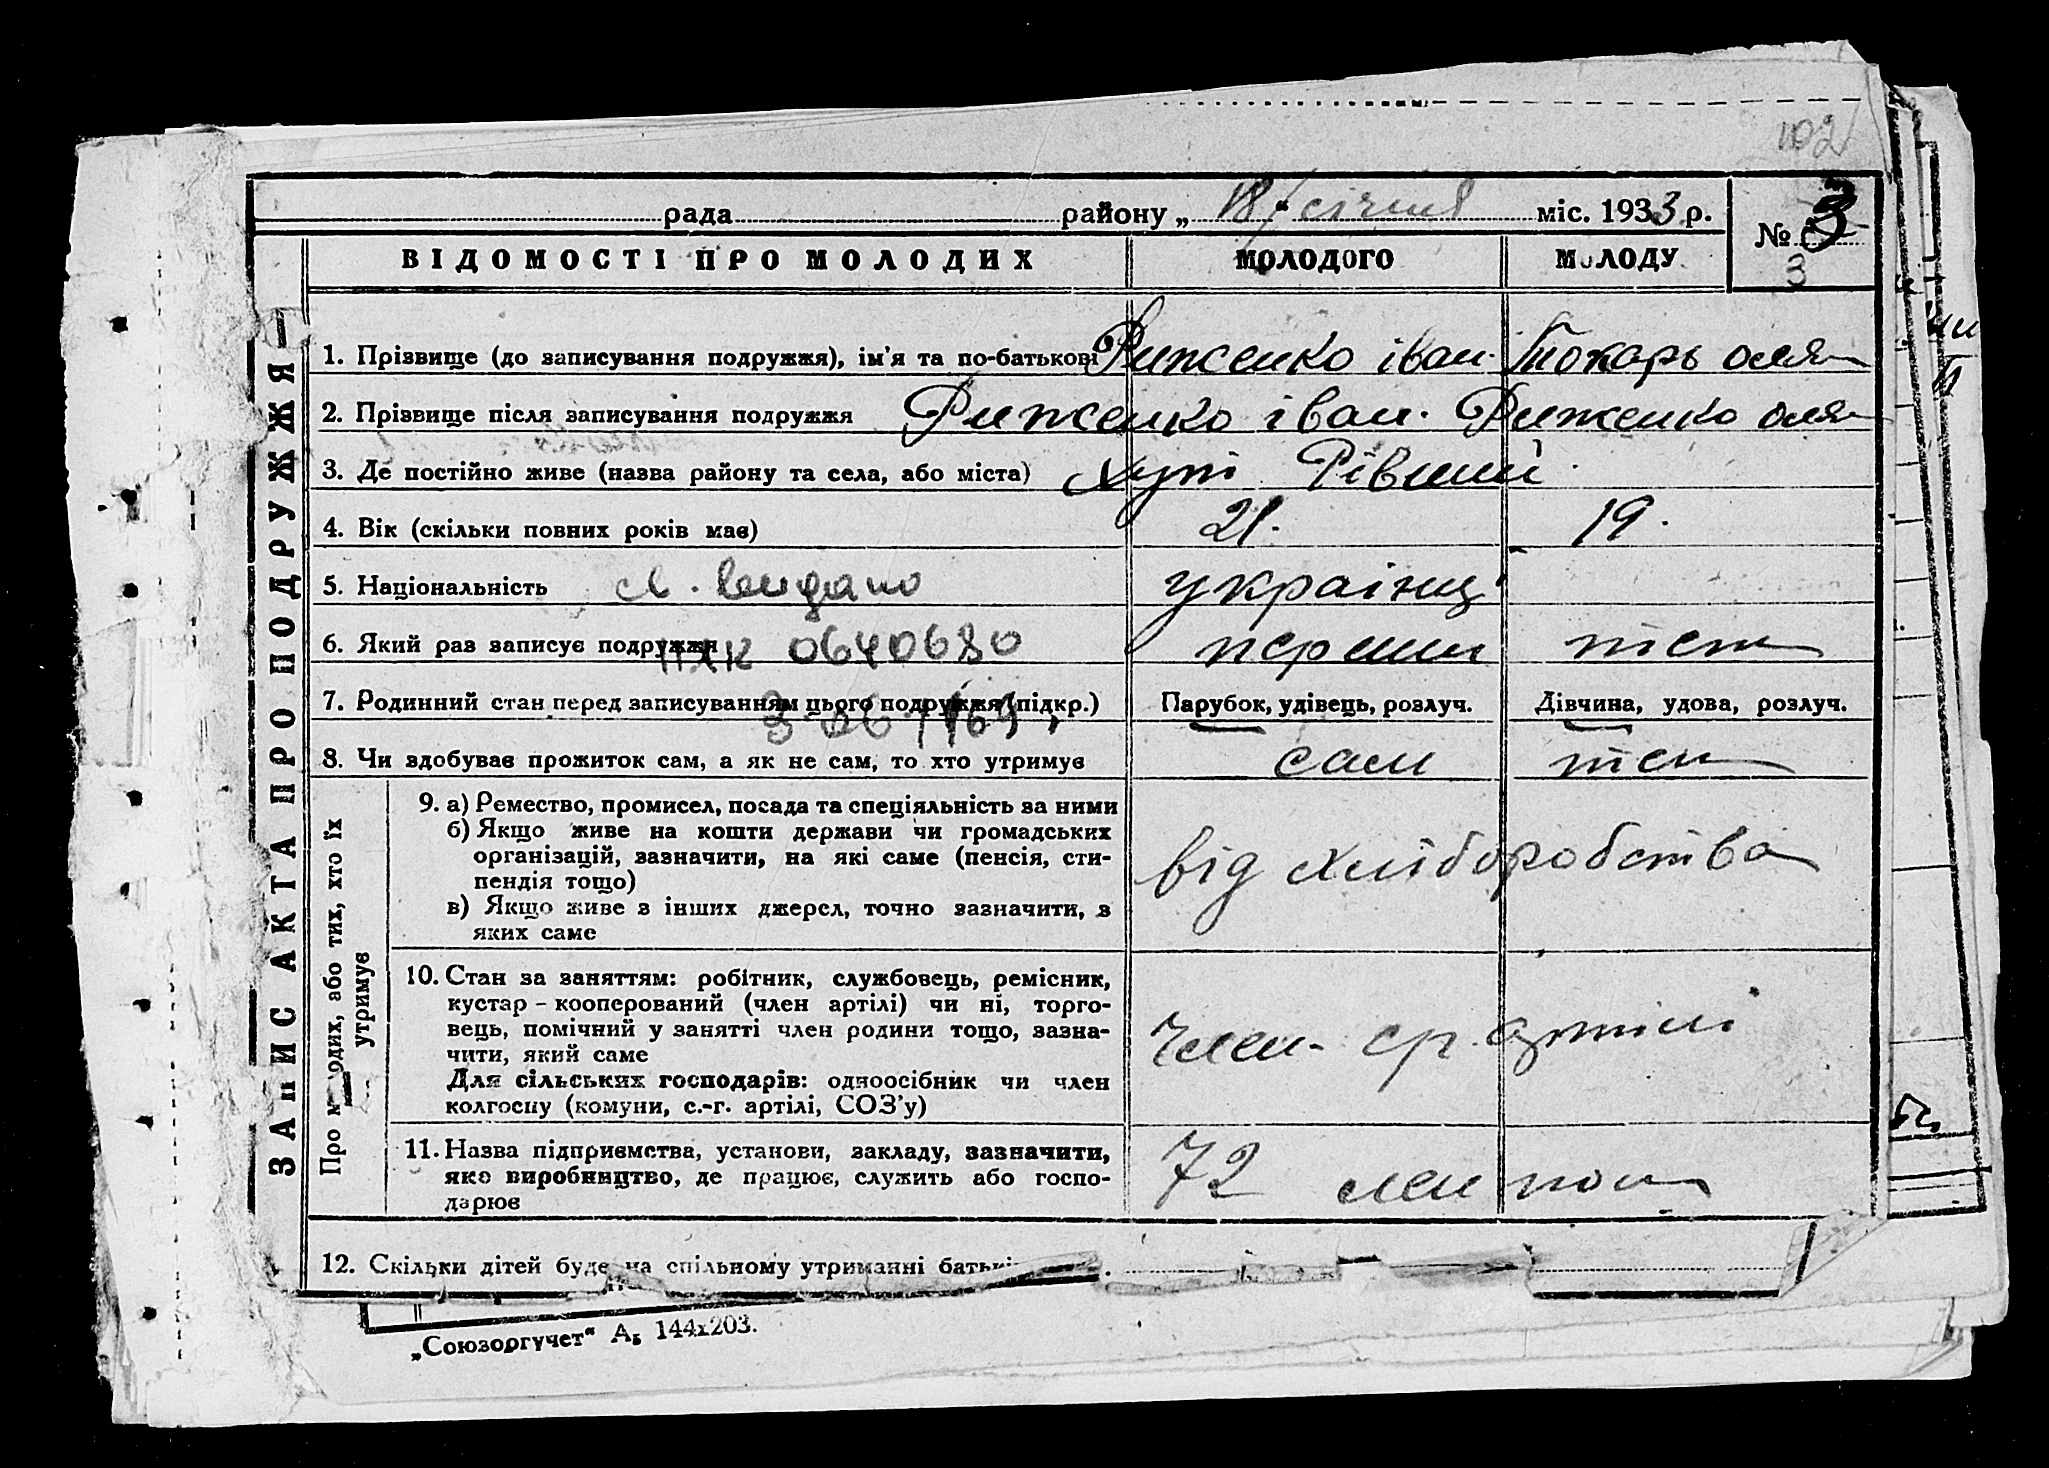 102
рада района „ 18 " січня міс. 1933 р.
№ 3
3
ВІДОМОСТІ ПРО МОЛОДИХ МОЛОДОГО МОЛОДУ
ЗАПИС АКТА ПРО ПОДРУЖЖЯ
1. Прізвище (до записування подружжя), ім'я та по-батькові Риженко іван. Токарь оля
2. Прізвище після записування подружжя Риженко іван. Риженко оля
3. Де постійно живе (назва району та села, або міста) Хутір Рівний
4. Вік (скільки повних років має) 21. 19.
5. Національність св. видано українці
6. Який раз записує подружжя 0640680 перший теж
7. Родинний стан перед записуванням цього подружжя (підкр.) Парубок, удівець, розлуч. Дівчина, удова, розлуч.
8. Чи здобуває прожиток сам, а як не сам, то хто утримує сам теж
Про молодих, або тих, хто їх утримує
9. а) Ремество, промисел, посада та спеціяльність за ними
б) Якщо живе на кошти держави чи громадських
організацій, зазначити, на які саме (пенсія, сти-
пендія тощо)
в) Якщо живе з інших джерел, точно зазначити, з
яких саме
від хліборобства
10. Стан за заняттям: робітник, службовець, ремісник,
кустар – кооперований (член артілі) чи ні, торго-
вець, помічний у занятті член родини тощо, зазна-
чити, який саме
Для сільських господарів: одноосібник чи член
колгоспу (комуни, с.-г. артілі, СОЗ'у)
Член ср. артілі
11. Назва підприємства, установи, закладу, зазначити,
яке виробництво, де працює, служить або госпо-
дарює
72
12. Скільки дітей буде на спільному утриманні
„Союзоргучет" А₅ 144х203.